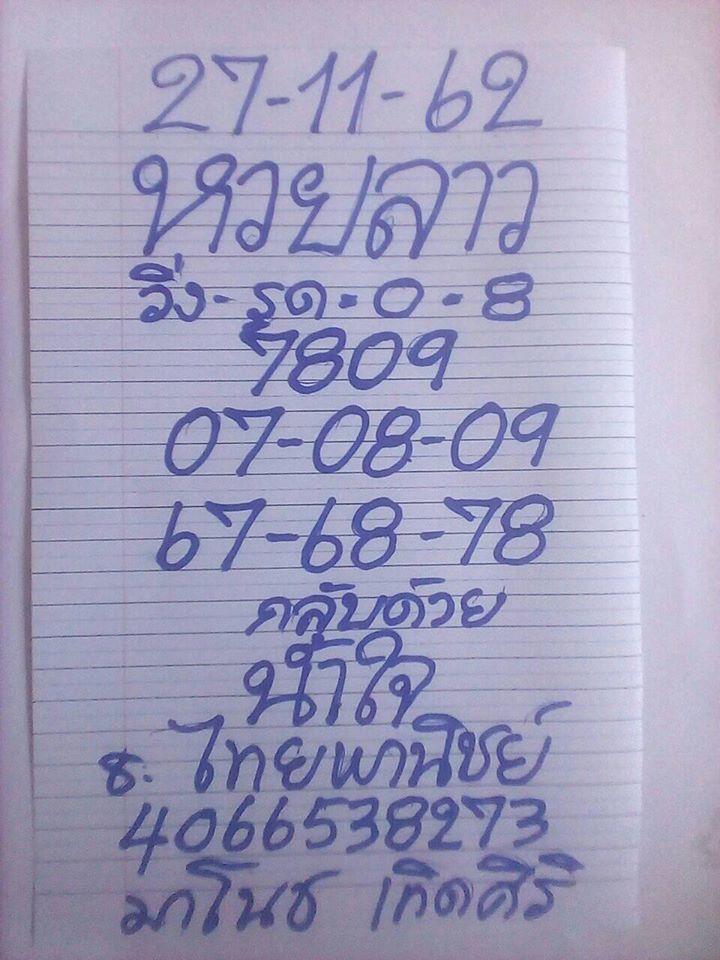 27-11-62
หวยลาว
วิ่ง-รูด-0-8
7809
07-08-09
67-68-78
กลับด้วย
น้ำใจ
ธ. ไทยพานิชย์
4066538273
มาโนช เกิดศิริ